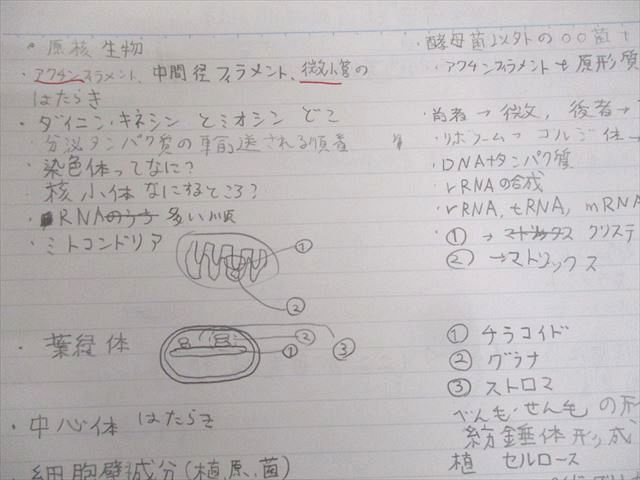 原核生物
酵母菌以外の○○菌
・アクチンフィラメント、中間径フィラメント、微小管の
はたらき
・アクチンフィラメント
原形質
・ダイニン・キネシンとミオシン どこ
前者→微, 後者→
・分泌タンパク質の輸送される順番
・リボソーム→ゴルジ体→
・染色体ってなに?
・DNA+タンパク質
・核小体なにするところ?
・rRNAの合成
・RNAのうち 多い順
・rRNA, tRNA, mRNA
・ミトコンドリア
①
②
①→マトリックス クリステ
②→マトリックス
・葉緑体
②
①
③
① チラコイド
② グラナ
③ ストロマ
・中心体 はたらき
べん毛・せん毛の形
紡錘体形成
・細胞壁成分(植,原,菌)
植 セルロース